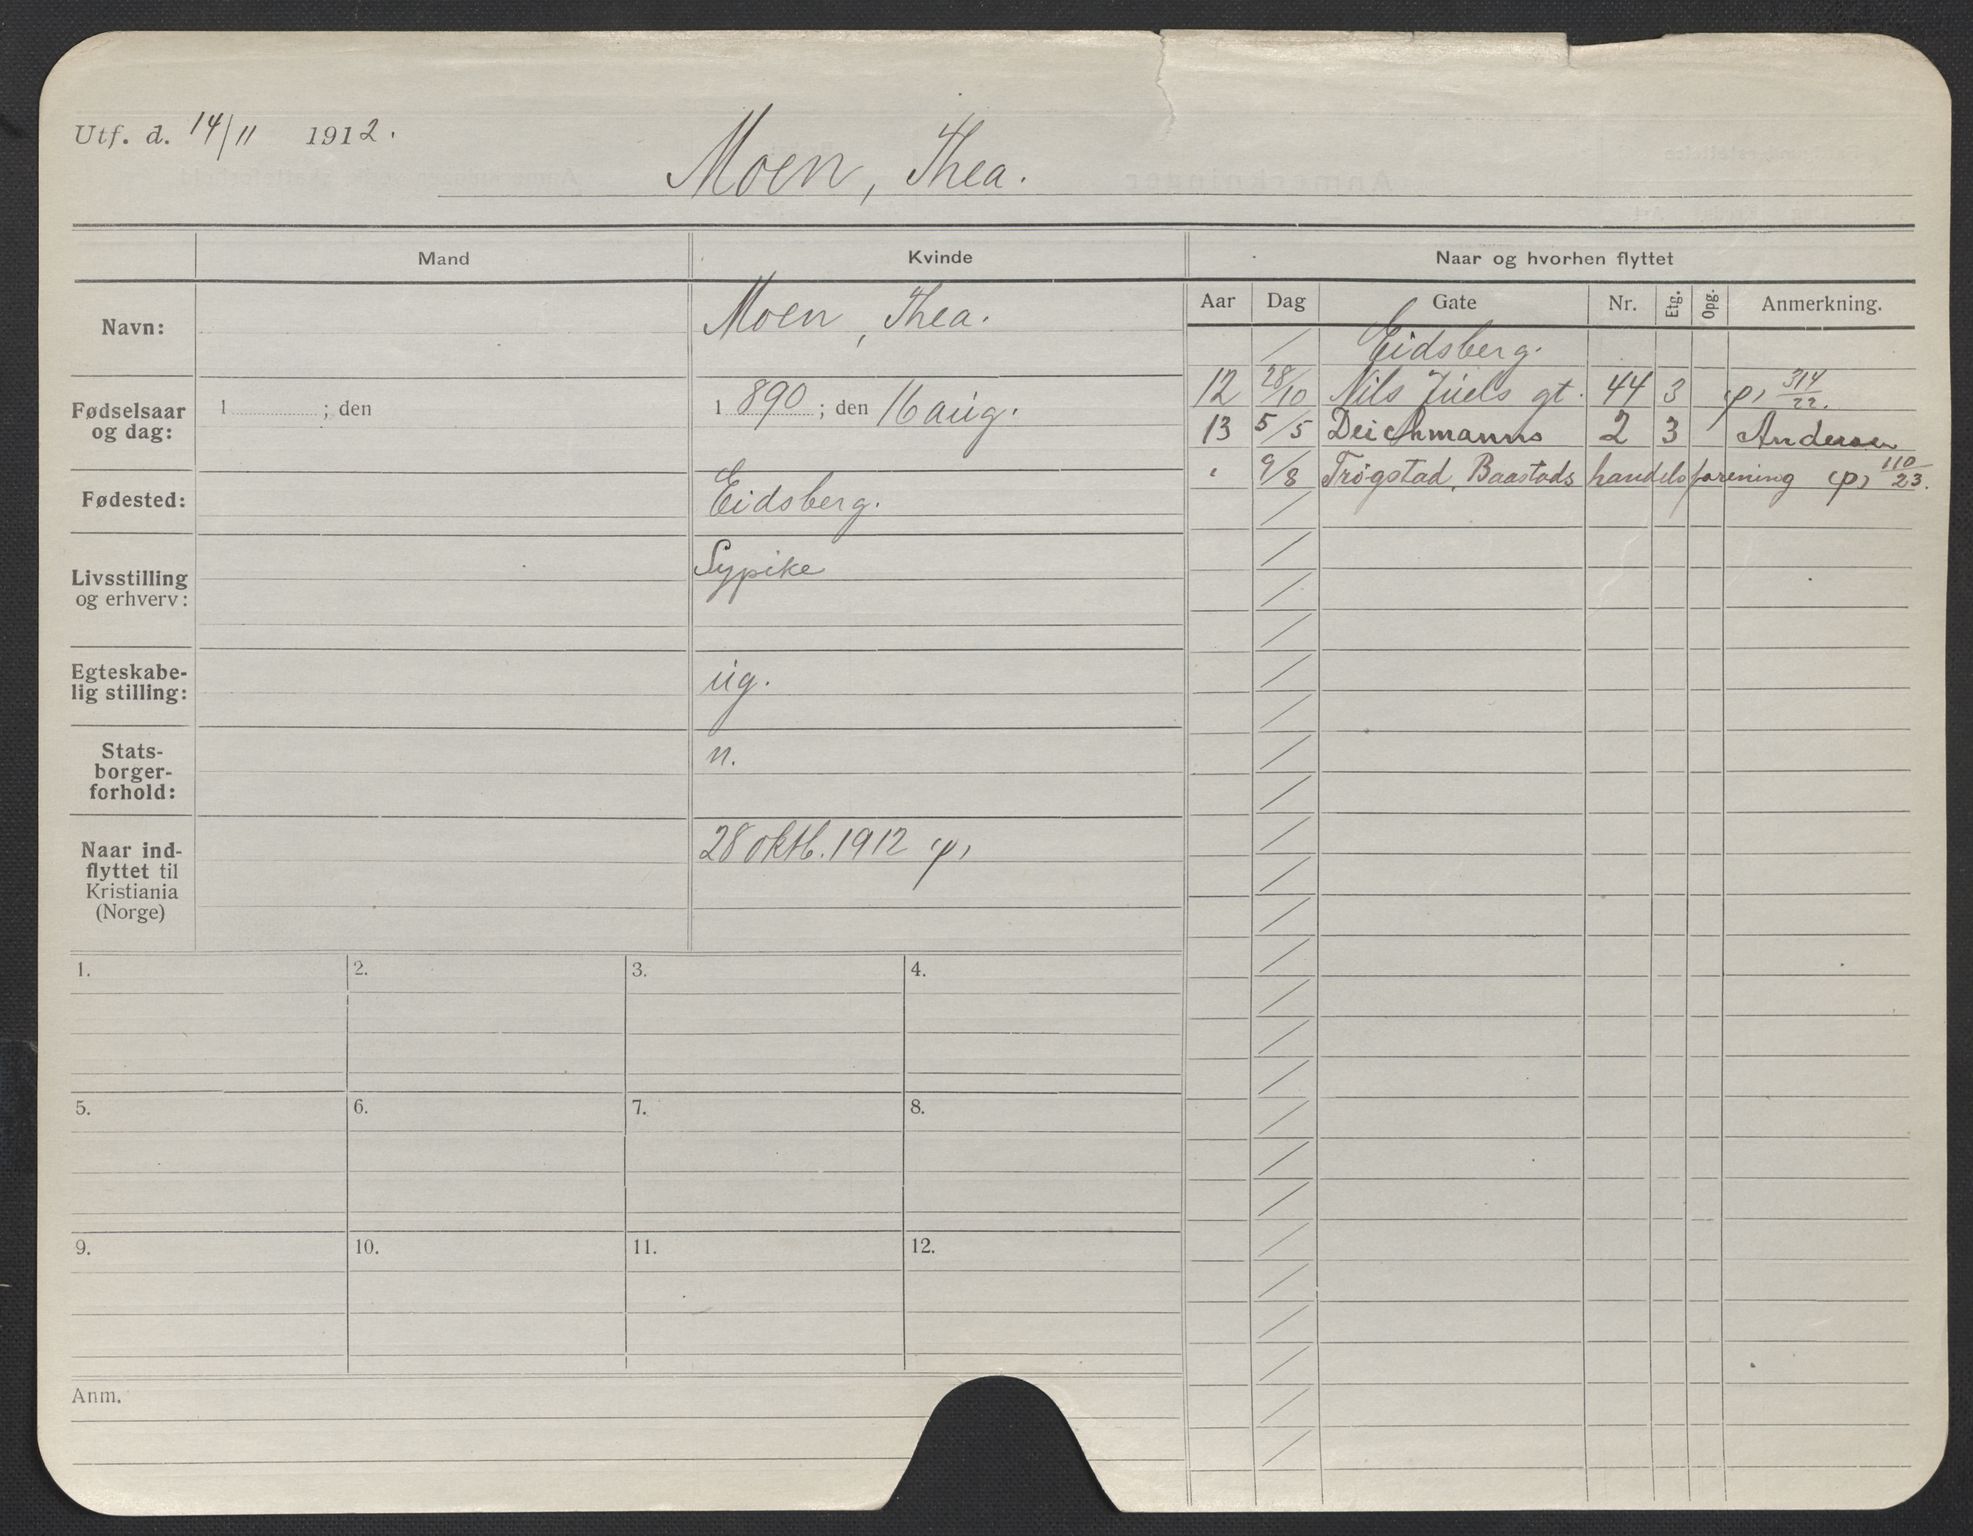 Utf. d. 14/11 1912.
Moen, Thea.
Mand
Kvinde
Naar og hvorhen flyttet
Navn:
Moen, Thea.
Fødselsaar og dag:
1 ; den
1890 ; den 16 aug.
Fødested:
Eidsberg.
Livsstilling og erhverv:
Sypike
Egteskabe-
lig stilling:
ug.
Stats-
borger-
forhold:
n.
Naar ind-
flyttet til
Kristiania
(Norge)
28 oktb. 1912
Aar Dag Gate Nr. Etg. Opg. Anmerkning.
/ Eidsberg.
12 28/10 Nils Juels gt. 44 3 314/22.
13 5/5 Deichmanns 2 3 Andersen
" 9/8 Trøgstad, Baastads handelsforening 110/23.
1. 2. 3. 4.
5. 6. 7. 8.
9. 10. 11. 12.
Anm.